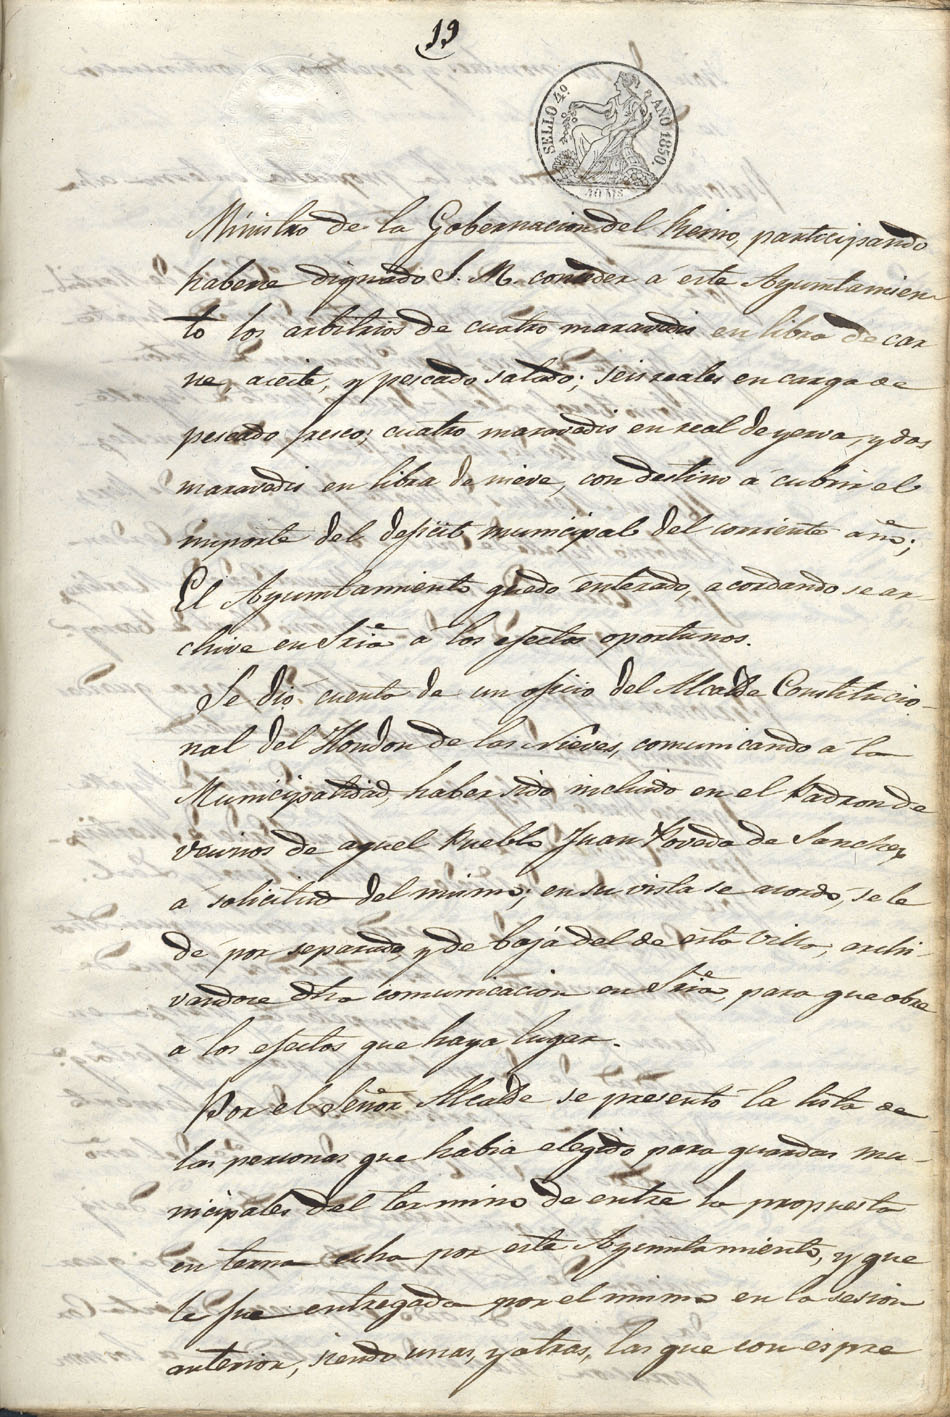 19
SELLO 4º. AÑO 1850.
40 Ms
Ministro de la Gobernacion del Reino, participando
haberse dignado S. M. conceder á este Ayuntamien-
to los arbitrios de cuatro maravedis en libra de car
ne, aceite, y pescado salado; seis reales en carga de
pescado fresco; cuatro maravedis en real de yerva, y dos
maravedis en libra de nieve, con destino á cubrir el
importe del deficit municipal del corriente año;
El Ayuntamiento quedó enterado, acordando se ar-
chive en Sria á los efectos oportunos.
Se dió cuenta de un oficio del Alcalde Constitucio-
nal del Hondon de las Nieves, comunicando á la
Municipalidad, haber sido incluido en el Padron de
vecinos de aquel Pueblo Juan Poveda de Sanchez
á solicitud del mismo; en su vista se acordó, se le
dé por separado, y de baja del de esta Villa, archi-
vandose dha comunicacion en Sria, para que obre
á los efectos que haya lugar.
Por el Señor Alcalde se presentó la lista de
las personas que habia elegido para guardas mu-
nicipales del termino de entre la propuesta
en terna echa por este Ayuntamiento, y que
le fue entregada por el mismo en la sesion
anterior, siendo unas, y otras, las que con espre